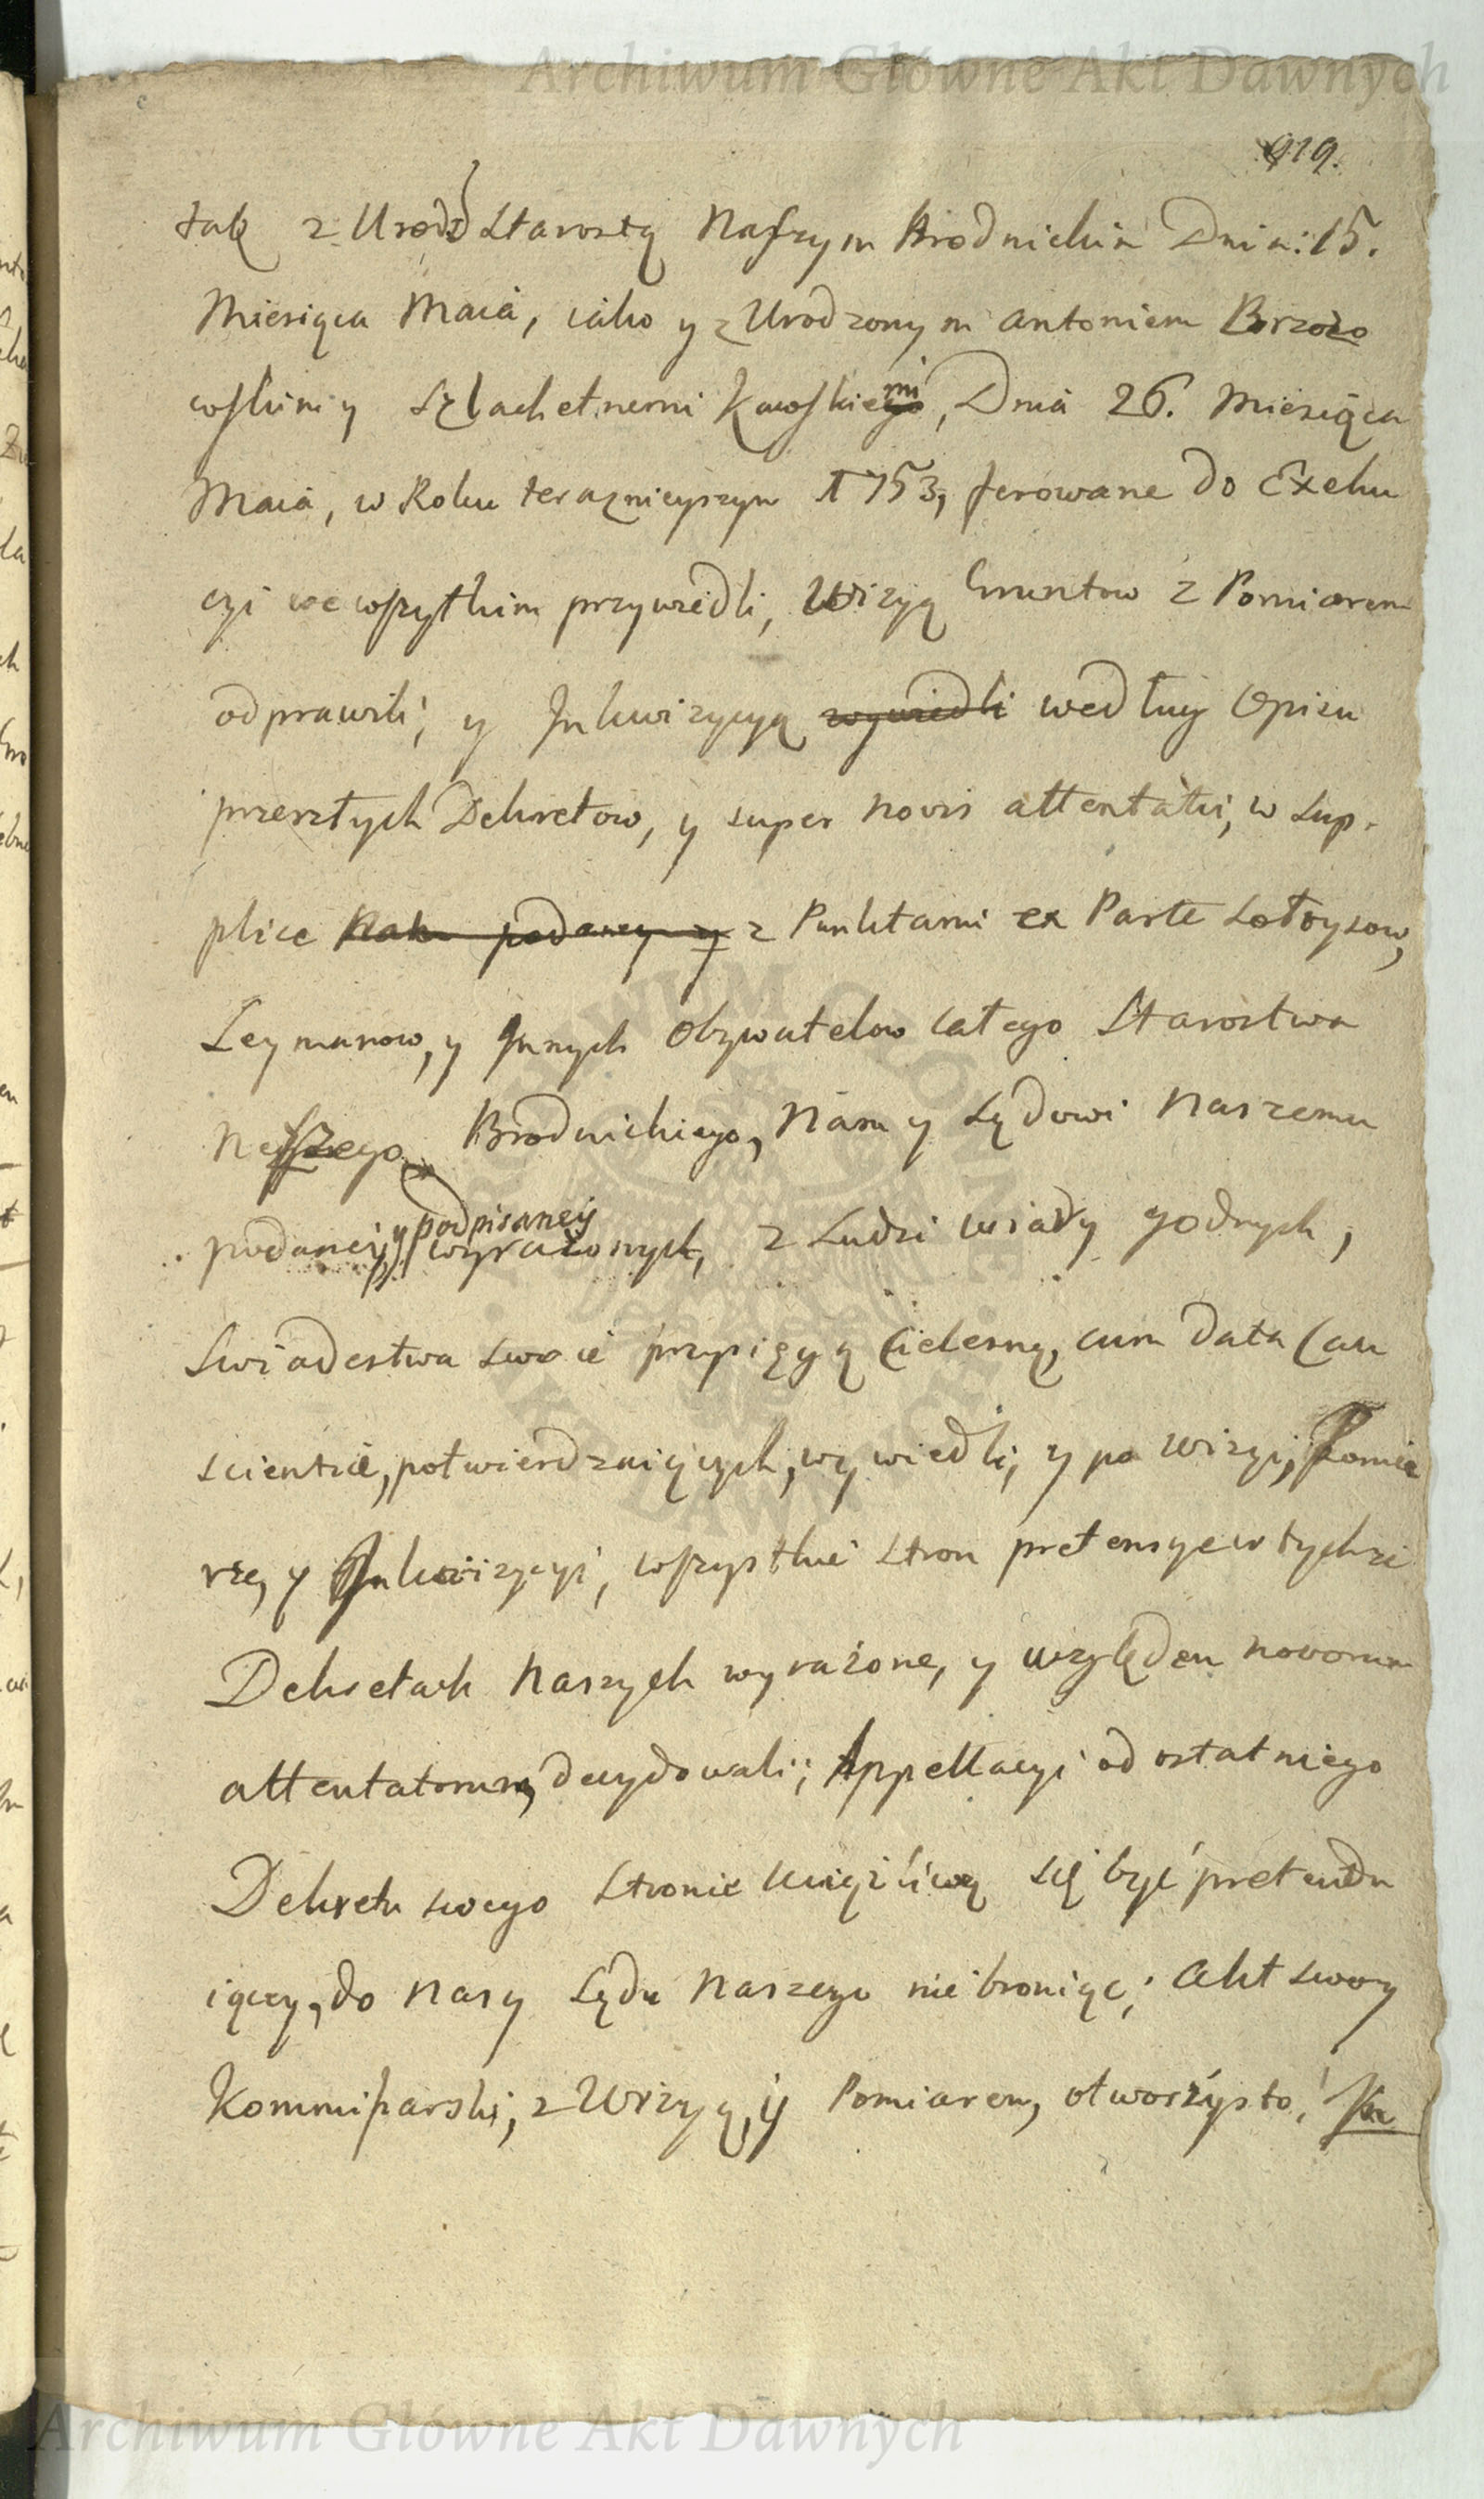 Archiwum Główne Akt Dawnych
919.
tak z Urodz Starostą Naszym Brodnickim Dnia: 15.
Miesiąca Maia, iako y z Urodzonym Antoniem Brzozo
wskim y Szlachetnemi Kawskiemi, Dnia 26. Miesiąca
Maia, w Roku teraznieyszym 1753, ferowane do Exeku
cyi we wszytkim przywiedli, Wizyą Gruntow z Pomiarem
odprawili; y Inkwizycyą wywiedli według Opisu
przeszłych Dekretow, y super novis attentatis, w Sup-
plice podaney y z Punktami ex Parte Sołtysow,
Leymanow, y Innych Obywatelow całego Starostwa
Naszego Brodnickiego, Nam y Sądowi Naszemu
podaney, y podpisaney wyrażonych, z Ludzi wiary godnych,
Swiadectwa swoie przysięgą Cielesną, cum data Cau
scientiae, potwierdzaiących, wywiedli; y po Wizyi, Pomia
rze, y Inkwizycyi, wszystkie Stron pretensye w tychże
Dekretach Naszych wyrażone, y względem novorum
attentatorum, decydowali; Appellacyi od ostatniego
Dekretu swego Stronie Uciążliwą się być pretendu
iącey, do Nas y Sądu Naszego nie broniąc; Akt swoy
Kommissarski, z Wizyą, y Pomiarem, otworzysto,
Archiwum Główne Akt Dawnych